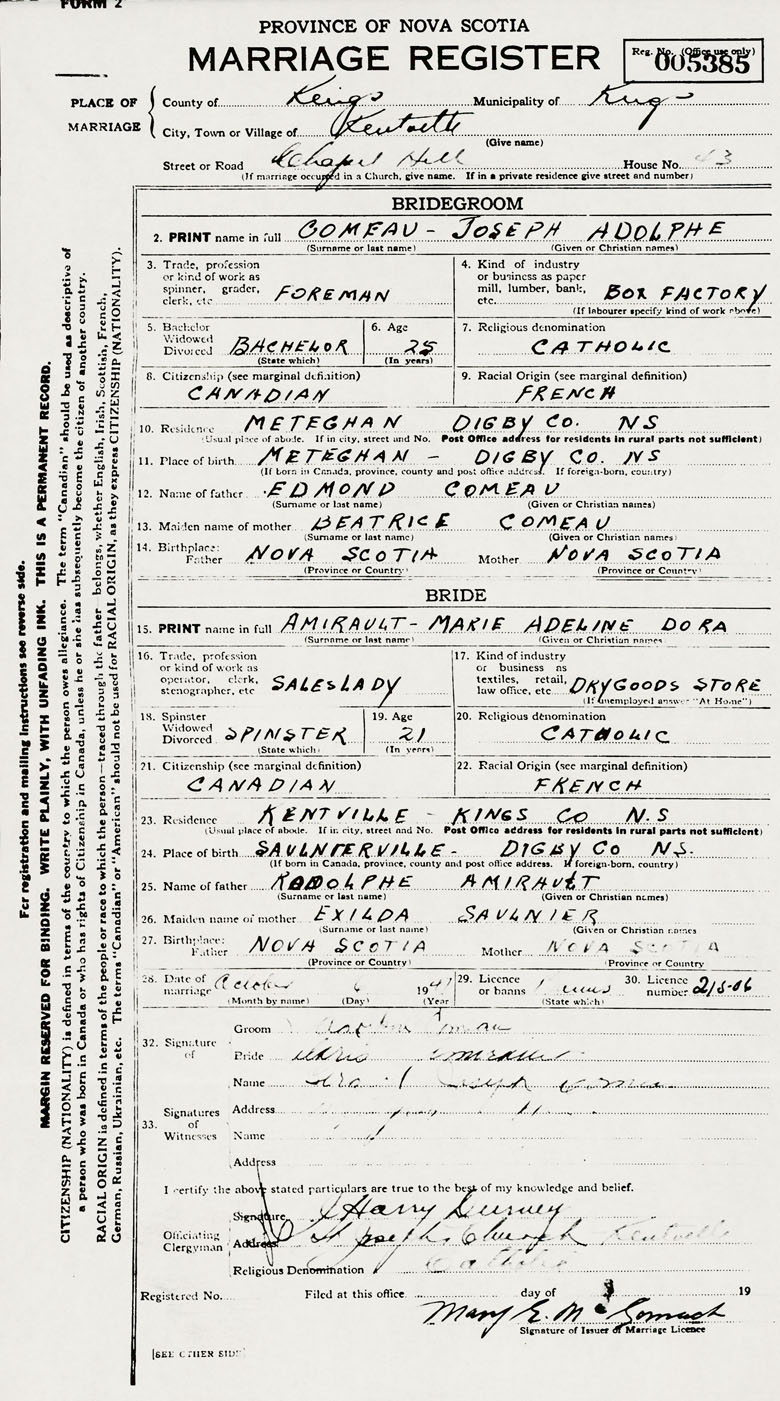 FORM 2
PROVINCE OF NOVA SCOTIA
MARRIAGE REGISTER
Reg. No. (Office use only)
005385
PLACE OF MARRIAGE
County of Kings Municipality of Kings
City, Town or Village of Kentville
(Give name)
Street or Road Chapel Hill House No. 43
(If marriage occupied in a Church, give name. If in a private residence give street and number)
BRIDEGROOM
2. PRINT name in full COMEAU - JOSEPH ADOLPHE
(Surname or last name) (Given or Christian names)
3. Trade, profession or kind of work as spinner, grader, clerk, etc FOREMAN
4. Kind of industry or business as paper mill, lumber, bank, etc. BOX FACTORY
(If labourer specify kind of work above)
5. Bachelor Widowed Divorced BACHELOR
(State which)
6. Age 25
(In years)
7. Religious denomination
CATHOLIC
8. Citizenship (see marginal definition)
CANADIAN
9. Racial Origin (see marginal definition)
FRENCH
10. Residence METEGHAN DIGBY CO. NS
(Usual place of abode. If in city, street and No. Post Office address for residents in rural parts not sufficient)
11. Place of birth METEGHAN - DIGBY CO. NS
(If born in Canada, province, county and post office address. If foreign-born, country)
12. Name of father EDMOND COMEAU
(Surname or last name) (Given or Christian names)
13. Maiden name of mother BEATRICE COMEAU
(Surname or last name) (Given or Christian names)
14. Birthplace: Father NOVA SCOTIA Mother NOVA SCOTIA
(Province or Country) (Province or Country)
BRIDE
15. PRINT name in full AMIRAULT- MARIE ADELINE DORA
(Surname or last name) (Given or Christian names
16. Trade, profession or kind of work as operator, clerk, stenographer, etc SALESLADY
17. Kind of industry or business as textiles, retail, law office, etc. DRYGOODS STORE
(If unemployed answer "At Home")
18. Spinster Widowed Divorced SPINSTER
(State which)
19. Age 21
(In years)
20. Religious denomination
CATHOLIC
21. Citizenship (see marginal definition)
CANADIAN
22. Racial Origin (see marginal definition)
FRENCH
23. Residence KENTVILLE - KINGS CO N.S
(Usual place of abode. If in city, street and No. Post Office address for residents in rural parts not sufficient)
24. Place of birth SAULNIERVILLE- DIGBY CO NS.
(If born in Canada, province, county and post office address. If foreign-born, country)
25. Name of father RODOLPHE AMIRAULT
(Surname or last name) (Given or Christian names)
26. Maiden name of mother EXILDA SAULNIER
(Surname or last name) (Given or Christian names
27. Birthplace: Father NOVA SCOTIA Mother NOVA SCOTIA
(Province or Country) (Province or Country
28. Date of marriage October 6 1947
(Month by name) (Day) (Year
29. Licence or banns
(State which)
30. Licence number
32. Signature of
Groom
Bride
33. Signatures of Witnesses
Name Joseph
Address
Name
Address
I certify the above stated particulars are true to the best of my knowledge and belief.
Officiating Clergyman
Signature Harry Durney
Address St Joseph's Church Kentville
Religious Denomination Catholic
Registered No. Filed at this office day of 19
Mary E. McCormack
Signature of Issuer of Marriage Licence
[SEE OTHER SIDE]
For registration and mailing instructions see reverse side.
MARGIN RESERVED FOR BINDING. WRITE PLAINLY, WITH UNFADING INK. THIS IS A PERMANENT RECORD.
CITIZENSHIP (NATIONALITY) is defined in terms of the country to which the person owes allegiance. The term "Canadian" should be used as descriptive of
a person who was born in Canada or who has rights of Citizenship in Canada, unless he or she has subsequently become the citizen of another country.
RACIAL ORIGIN is defined in terms of the people or race to which the person—traced through the father—belongs, whether English, Irish, Scottish, French,
German, Russian, Ukrainian, etc. The terms "Canadian" or "American" should not be used for RACIAL ORIGIN, as they express CITIZENSHIP (NATIONALITY).